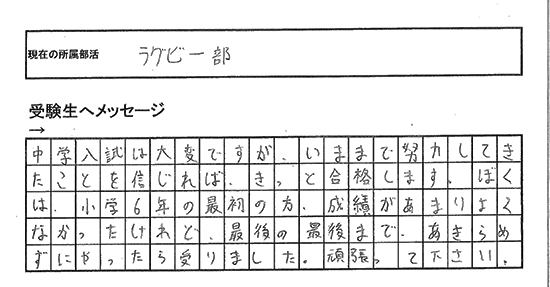 現在の所属部活 ラグビー部
受験生へメッセージ
→
中学入試は大変ですが、いままで努力してき
たことを信じれば、きっと合格します。ぼく
は、小学6年の最初の方、成績があまりよく
なかったけれど、最後の最後まで、あきらめ
ずにやったら受りました。頑張って下さい。